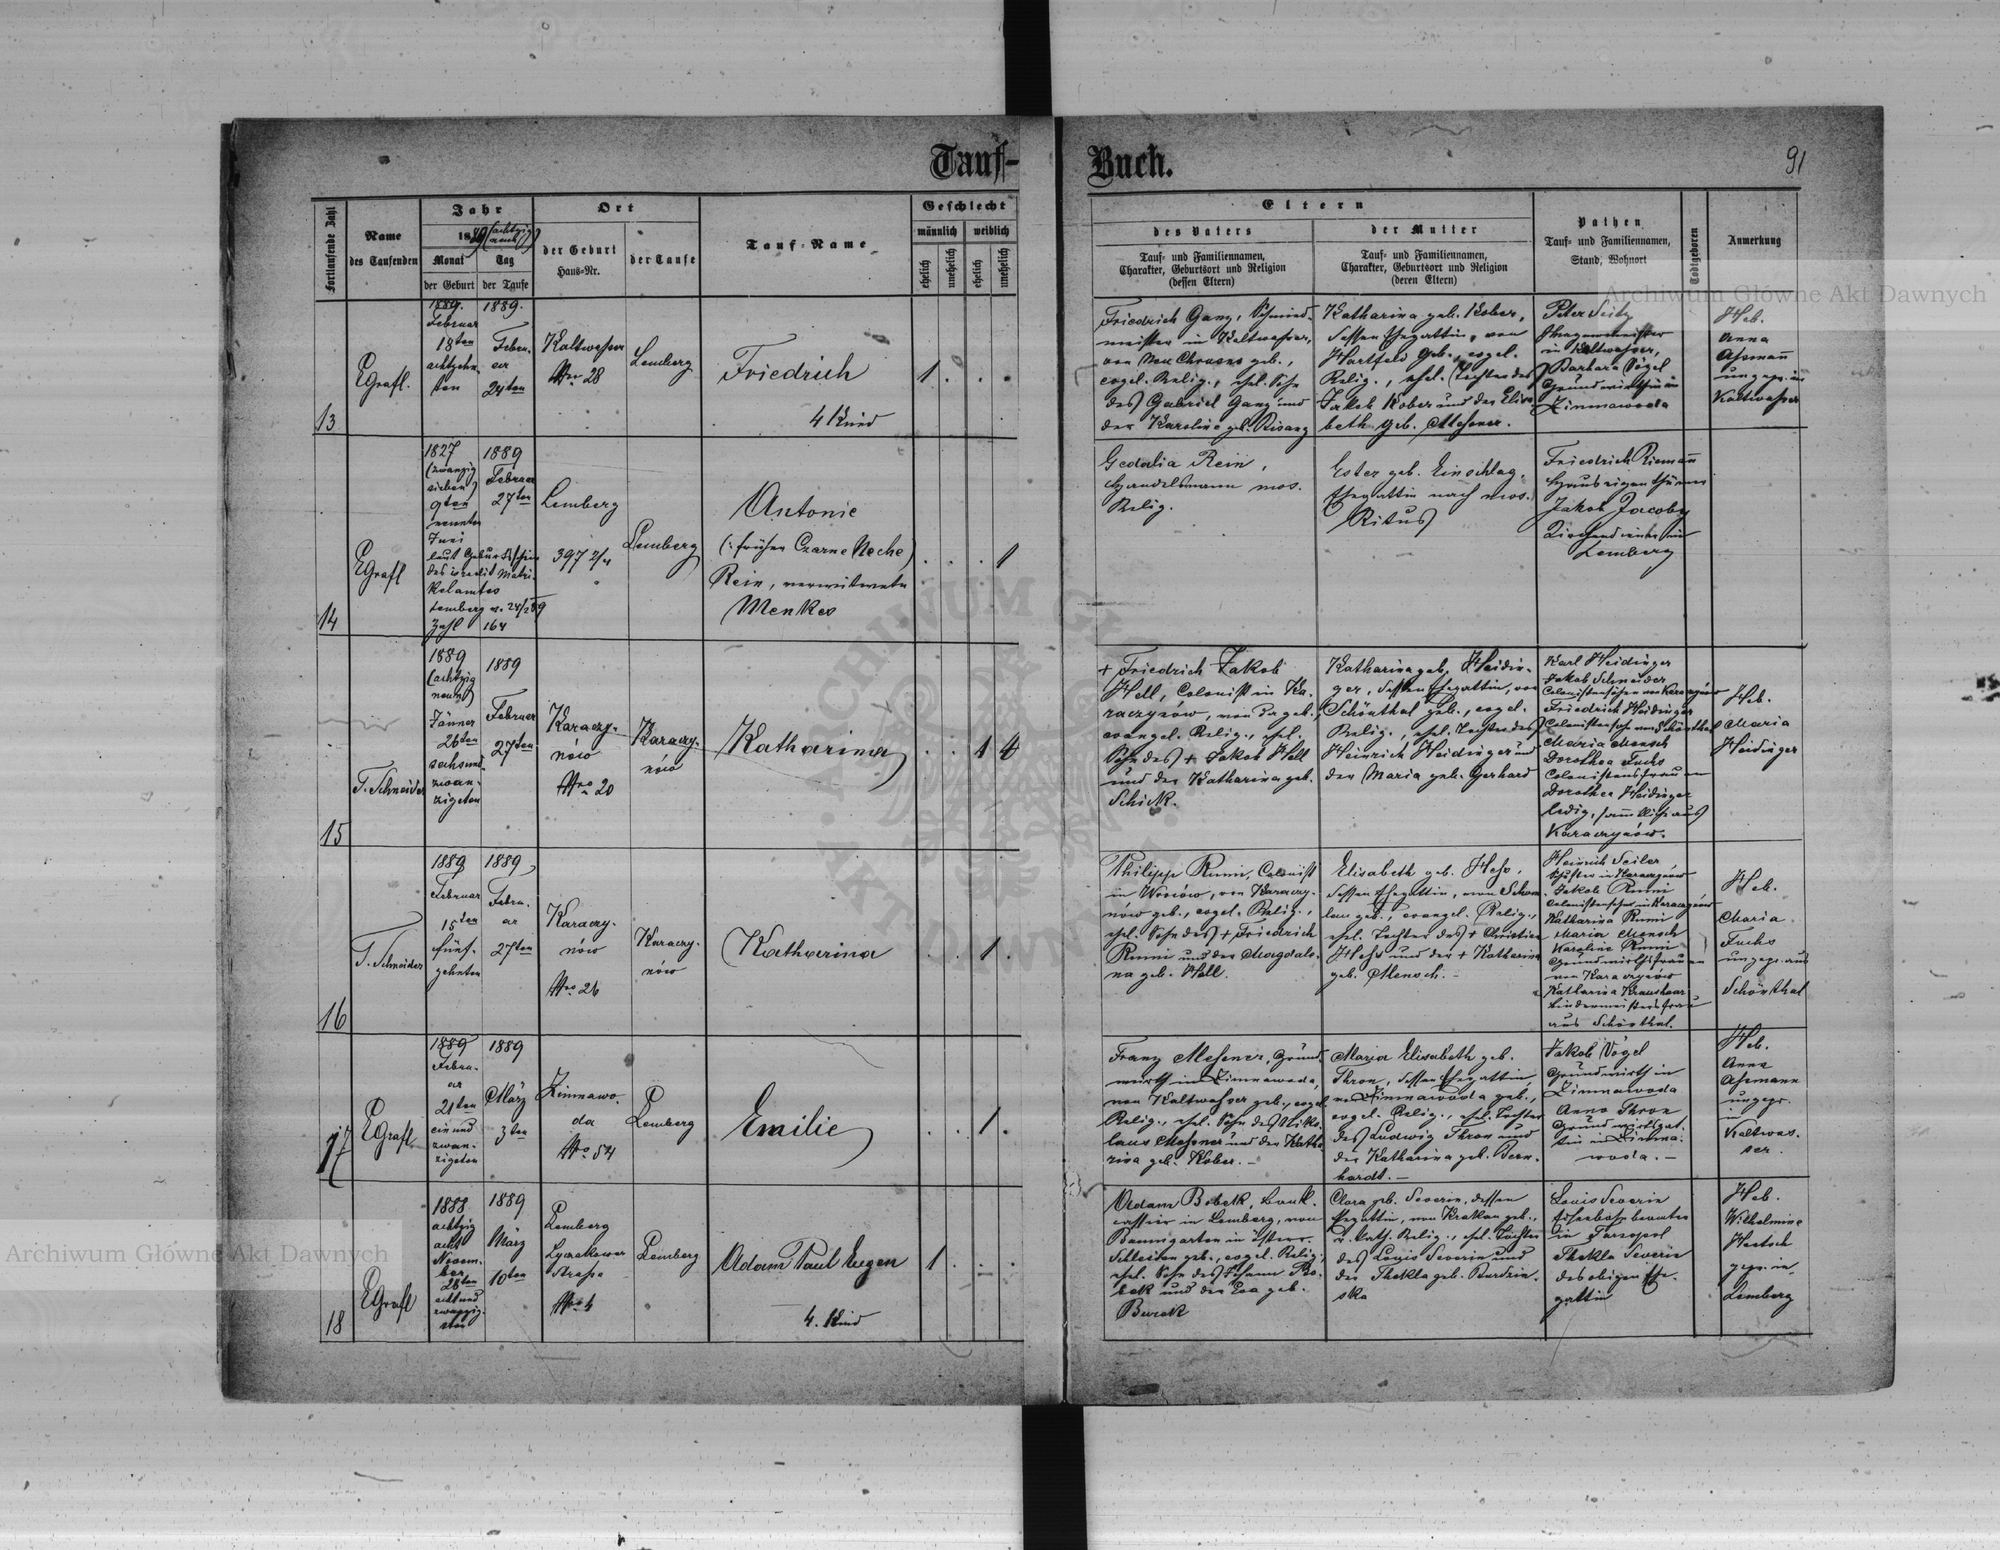 Tauf-
Buch.
91
Fortlaufende Zahl
Name
des Taufenden
Jahr
1889 (achtzig neun)
Monat
Tag
der Geburt
der Taufe
Ort
der Geburt
Haus-Nr.
der Taufe
Tauf-Name
Geschlecht
männlich
weiblich
ehelich
unehelich
ehelich
unehelich
Eltern
des Vaters
Tauf- und Familiennamen,
Charakter, Geburtsort und Religion
(dessen Eltern)
der Mutter
Tauf- und Familiennamen,
Charakter, Geburtsort und Religion
(deren Eltern)
Pathen
Tauf- und Familiennamen,
Stand, Wohnort
Todtgeboren
Anmerkung
13
EGrafl.
1889.
Februar
18ten
achtzehn-
ten
1889.
Febru-
ar
24ten
Kaltwasser
Nro 28
Lemberg
Friedrich
4 Kind
1
Friedrich Ganz, Schmied-
meister in Kaltwasser,
von Neu Chrusno geb.,
evgel. Relig., ehel. Sohn
des Gabriel Ganz und
der Karoline geb. Risang
Katharina geb. Kober,
dessen Ehegattin, von
Hartfeld geb., evgel.
Relig., ehel. Tochter des
Jakob Kober und der Elisa-
beth geb. Messner.
Peter Seitz
in Kaltwasser,
Barbara Vögel
Grundwirthin in
Zimnawoda
Heb.
Anna
Assmann
ungepr. in
Kaltwasser
14
EGrafl
1827
(zwanzig
sieben)
9ten
neunten
Juni
laut Geburtsschein
des israelit. Matri-
kelamtes
Lemberg v. 24/2 889
Zahl 164
1889
Februar
27ten
Lemberg
397 2/4
Lemberg
Antonie
(: früher Czarne Neche)
Rein, verwitwete
Menkes
1
Gedalia Rein,
Handelsmann mos.
Relig.
Ester geb. Einschlag
Ehegattin nach mos.
Ritus
Friedrich Riemann
Hauseigenthümer
Jakob Jacoby
Kirchendiener in
Lemberg
15
T. Schneider
1889
(achtzig
neun)
Jänner
26ten
sechsund-
zwan-
zigsten
1889
Februar
27ten
Karaczy-
nów
Nro 20
Karaczy-
nów
Katharina
1 4
+ Friedrich Jakob
Hell, Colonist in Ka-
raczynów, von da geb.,
evangel. Relig., ehel.
Sohn des + Jakob Hell
und der Katharina geb.
Schick.
Katharina geb. Heidin-
ger, dessen Ehegattin, von
Schönthal geb., evgel.
Relig., ehel. Tochter des
Heinrich Heidinger und
der Maria geb. Gerhard
Karl Heidinger
Jakob Schneider
Colonistensöhne von Karaczynów
Friedrich Heidinger
Colonistensohn von Schönthal
Maria Mensch
Dorothea Fuchs
Colonistensfrauen
Dorothea Heidinger
ledig, sämmtliche aus
Karaczynów.
Heb.
Maria
Heidinger
16
T. Schneider
1889
Februar
15ten
fünf-
zehnten
1889
Febru-
ar
27ten
Karaczy-
nów
Nro 26
Karaczy-
nów
Katharina
1
Philipp Rumi, Colonist
in Wrocow, von Karaczy-
nów geb., evgel. Relig.,
ehel. Sohn des + Friedrich
Rumi und der Magdale-
na geb. Hell.
Elisabeth geb. Hess,
dessen Ehegattin, von
geb., evangel. Relig.,
ehel. Tochter des + Christian
Hess und der + Katharina
geb. Mensch. -
Heinrich Seiler
in Karaczynów
Jakob Rumi
Colonistensohn in Karaczynów
Katharina Rumi
Maria Mensch
Karoline Rumi
Grundwirthsfrauen
von Karaczynów
Katharina Kraushaar
aus Schönthal.
Heb.
Maria
Fuchs
ungepr. aus
Schönthal
17
EGrafl
1889
Febru-
ar
21ten
einund
zwan-
zigsten
1889
März
3ten
Zimnawo-
da
Nro 54
Lemberg
Emilie
1
Franz Messner, Grund-
wirth in Zimnawoda,
von Kaltwasser geb., evgel.
Relig., ehel. Sohn des Niko-
laus Messner und der Katha-
rina geb. Kober. -
Maria Elisabeth geb.
Thron, dessen Ehegattin,
von Zimnawoda geb.,
evgel. Relig., ehel. Tochter
des Ludwig Thron und
der Katharina geb. Bern-
hardt. -
Jakob Vögel
Grundwirth in
Zimnawoda
Anna Thron
Grundwirthsgat-
tin in Zimna-
woda. -
Heb.
Anna
Assmann
ungepr.
in
Kaltwas-
ser.
18
EGrafl
1888
achtzig
acht
Novem-
ber
28ten
achtund
zwanzig-
sten
1889
März
10ten
Lemberg
Lyczakower
Strasse
Nro 4
Lemberg
Adam Paul Eugen
4. Kind
1
Adam Bobek, Bank-
cassier in Lemberg, von
Baumgarten in österr.
Schlesien geb., evgel. Relig.,
ehel. Sohn des Johann Bo-
bek und der Eva geb.
Burek
Clara geb. Severin, dessen
Ehegattin, von Krakau geb.,
r. kath. Relig., ehel. Tochter
des Louis Severin und
der Thekla geb. Burdzin-
ska
Louis Severin
Eisenbahnbeamter
in Tarnopol
Thekla Severin
des obigen Ehe-
gattin
Heb.
Wilhelmine
Hertsch
gepr. in
Lemberg
Archiwum Główne Akt Dawnych
Archiwum Główne Akt Dawnych